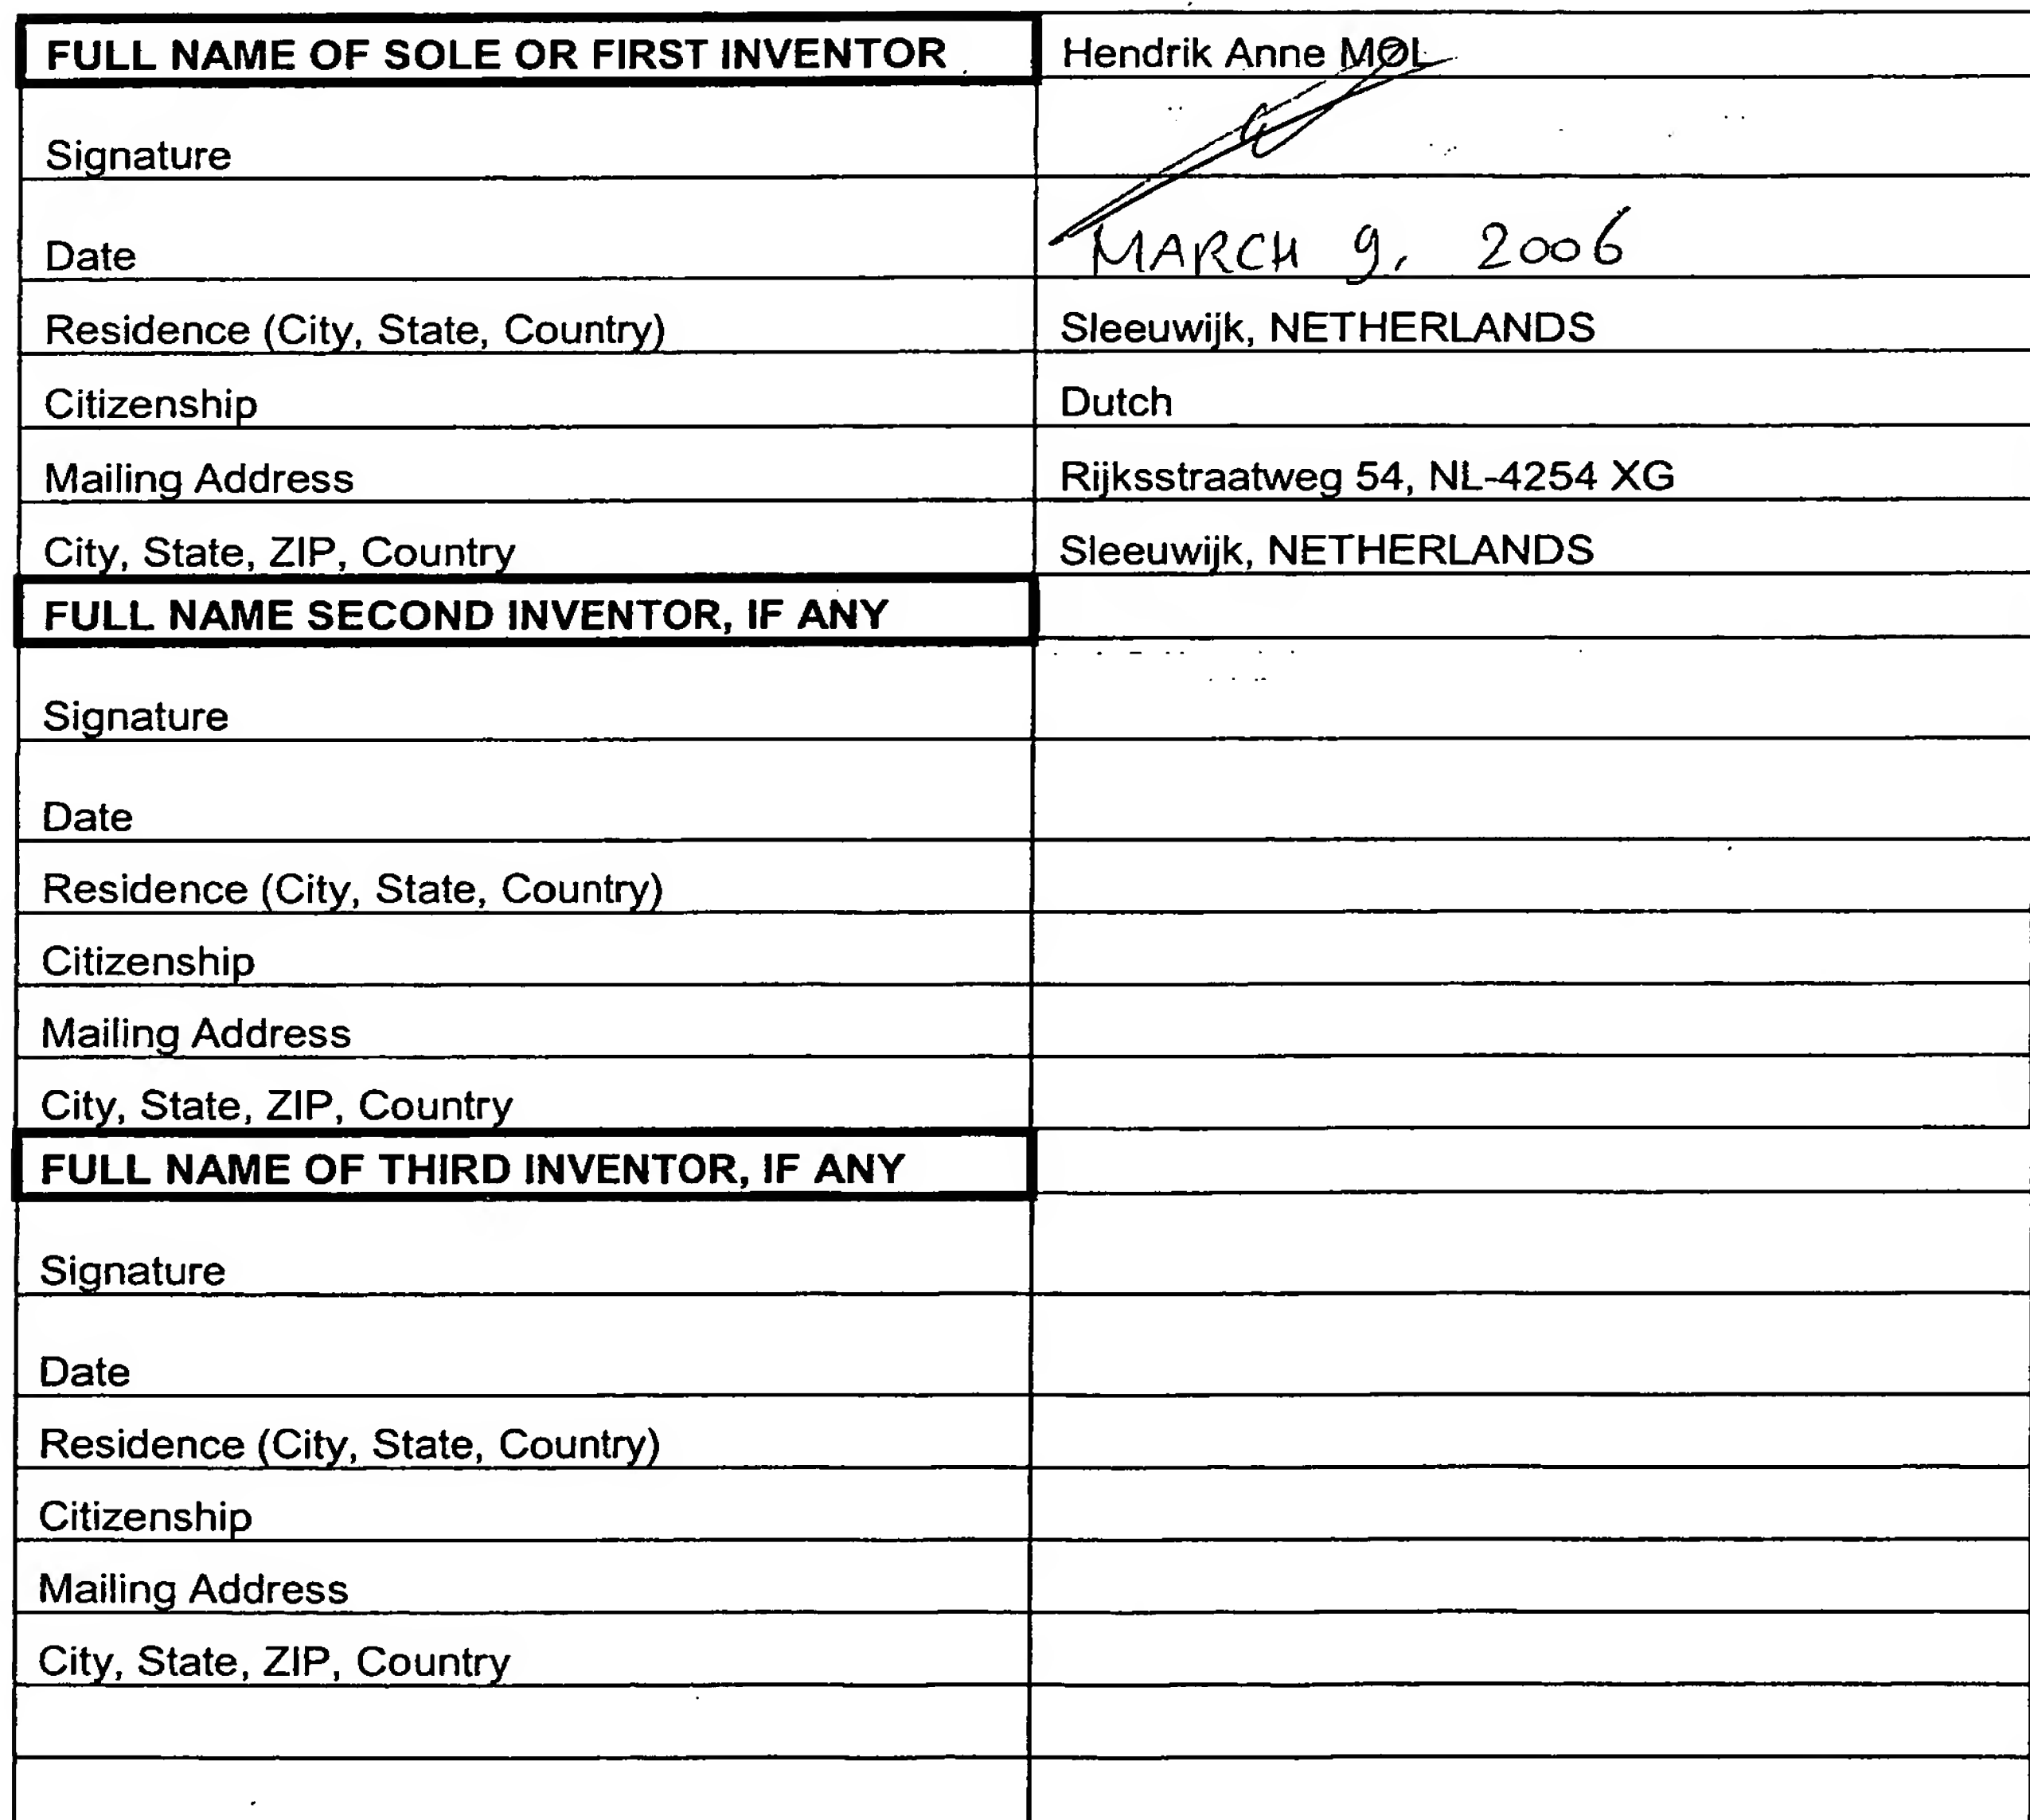 FULL NAME OF SOLE OR FIRST INVENTOR Hendrik Anne MOL
Signature
Date MARCH 9, 2006
Residence (City, State, Country) Sleeuwijk, NETHERLANDS
Citizenship Dutch
Mailing Address Rijksstraatweg 54, NL-4254 XG
City, State, ZIP, Country Sleeuwijk, NETHERLANDS
FULL NAME SECOND INVENTOR, IF ANY
Signature
Date
Residence (City, State, Country)
Citizenship
Mailing Address
City, State, ZIP, Country
FULL NAME OF THIRD INVENTOR, IF ANY
Signature
Date
Residence (City, State, Country)
Citizenship
Mailing Address
City, State, ZIP, Country